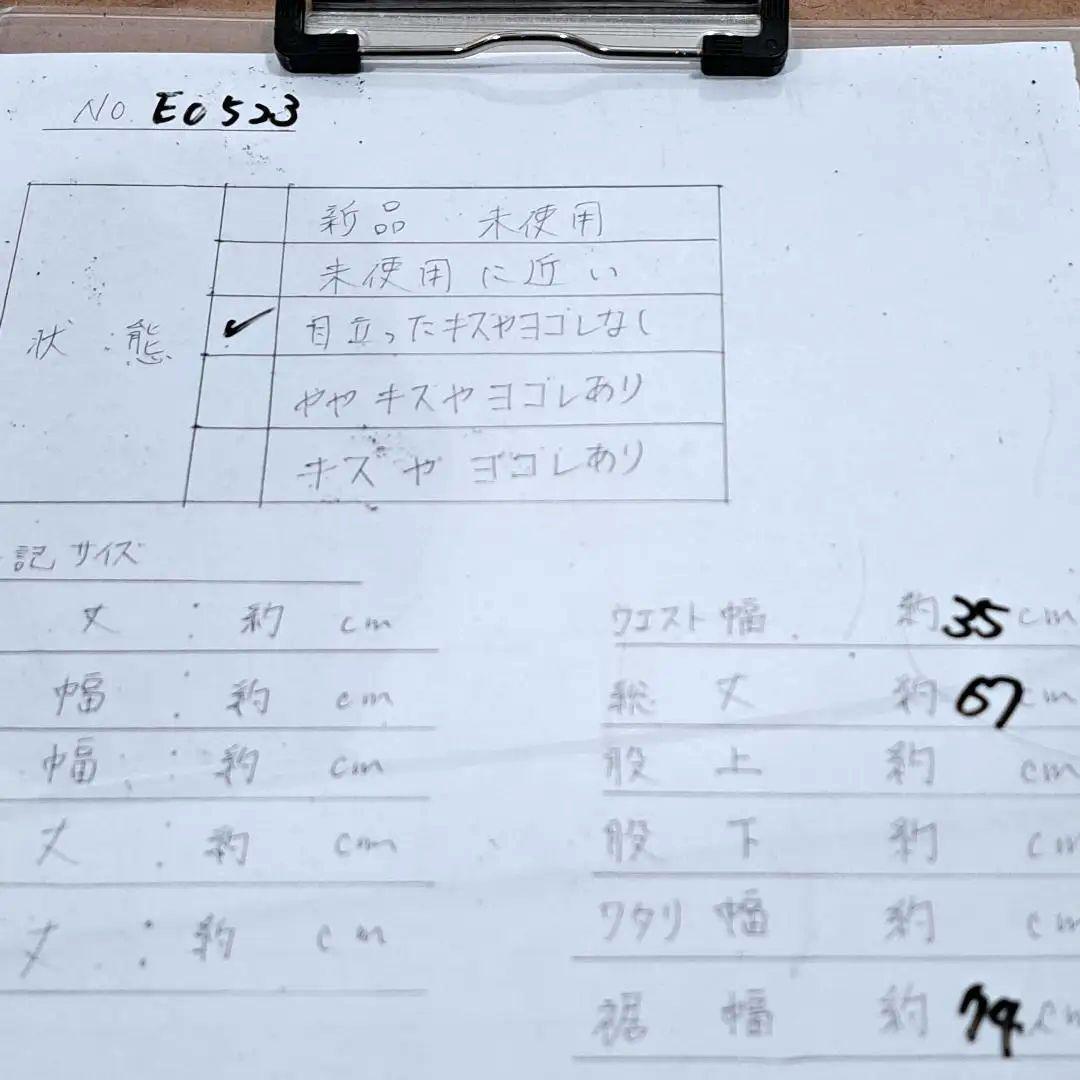 NO. E0523
状態
新品 未使用
未使用に近い
✓ 目立ったキズやヨゴレなし
ややキズやヨゴレあり
キズやヨゴレあり
記サイズ
丈 : 約 cm
幅 : 約 cm
幅 : 約 cm
丈 : 約 cm
丈 : 約 cm
ウエスト幅 約35cm
総丈 約67cm
股上 約 cm
股下 約 cm
ワタリ幅 約 cm
裾幅 約74cm